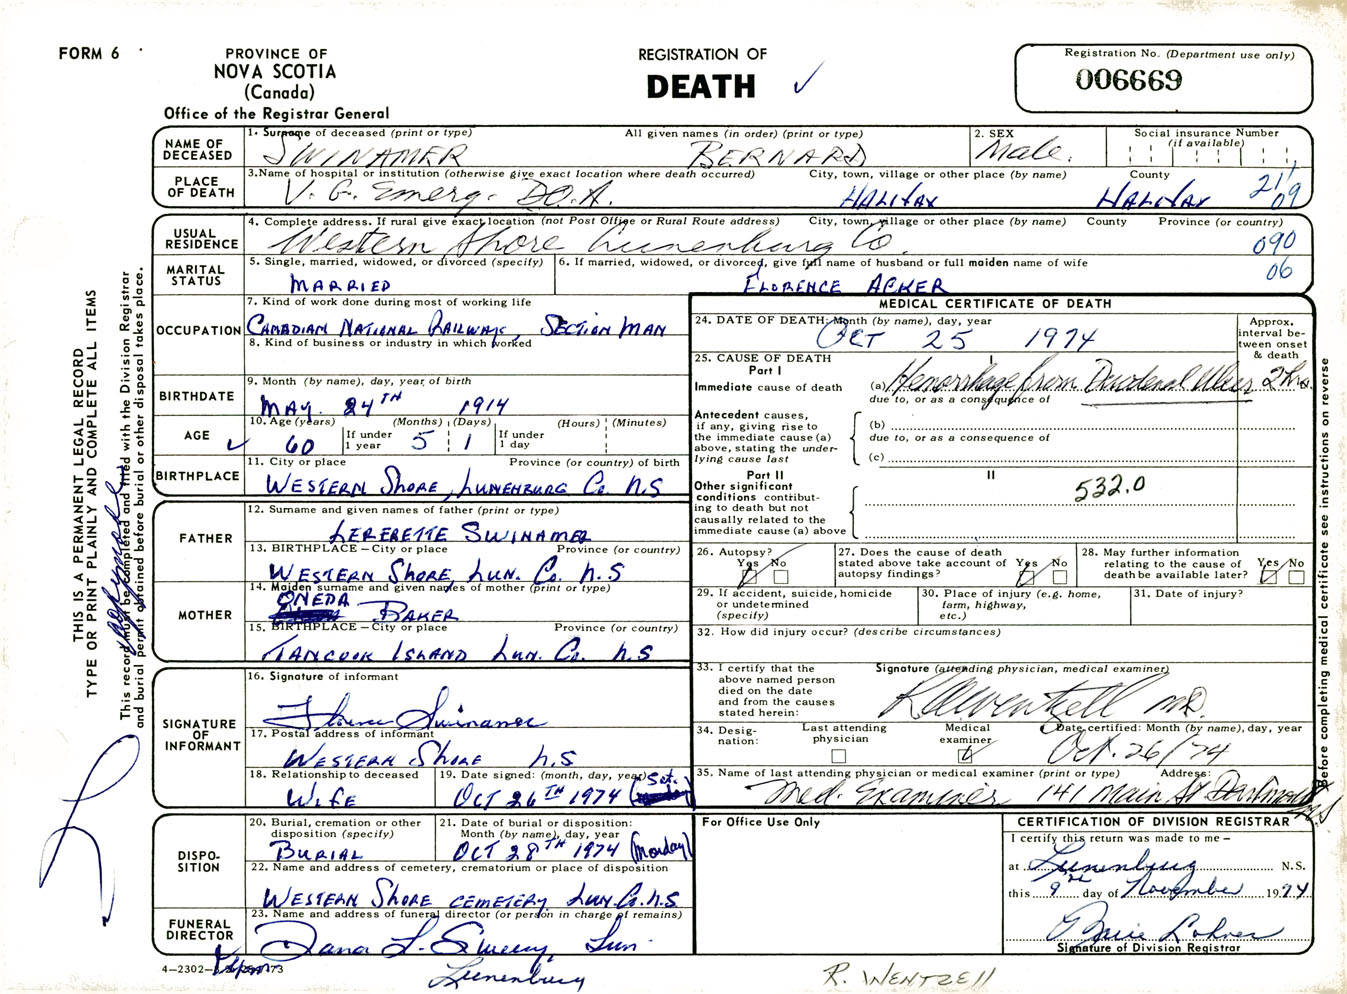 FORM 6
PROVINCE OF
NOVA SCOTIA
(Canada)
Office of the Registrar General
REGISTRATION OF
DEATH
Registration No. (Department use only)
006669
NAME OF DECEASED
1. Surname of deceased (print or type) All given names (in order) (print or type)
SWINAMER BERNARD
2. SEX
Male.
Social insurance Number
(if available)
PLACE OF DEATH
3. Name of hospital or institution (otherwise give exact location where death occurred) City, town, village or other place (by name) County
V. G. Emerg. D.O.A. HALIFAX HALIFAX
21
09
USUAL RESIDENCE
4. Complete address. If rural give exact location (not Post Office or Rural Route address) City, town, village or other place (by name) County Province (or country)
Western Shore Lunenburg Co. 090
06
MARITAL STATUS
5. Single, married, widowed, or divorced (specify)
MARRIED
6. If married, widowed, or divorced, give full name of husband or full maiden name of wife
FLORENCE ACKER
OCCUPATION
7. Kind of work done during most of working life
CANADIAN NATIONAL RAILWAY, SECTION MAN
8. Kind of business or industry in which worked
BIRTHDATE
9. Month (by name), day, year of birth
MAY. 24TH 1914
AGE
10. Age (years) (Months) (Days) (Hours) (Minutes)
If under 1 year
If under 1 day
60 5 1
BIRTHPLACE
11. City or place Province (or country) of birth
WESTERN SHORE, LUNENBURG Co. N.S
FATHER
12. Surname and given names of father (print or type)
LERERETTE SWINAMER
13. BIRTHPLACE – City or place Province (or country)
WESTERN SHORE, LUN. Co. N.S
MOTHER
14. Maiden surname and given names of mother (print or type)
ONEDA
BAKER
15. BIRTHPLACE – City or place Province (or country)
TANCOOK ISLAND LUN. Co. N.S
SIGNATURE OF INFORMANT
16. Signature of informant
Florence Swinamer
17. Postal address of informant
WESTERN SHORE N.S
18. Relationship to deceased
WIFE
19. Date signed: (month, day, year)
OCT 26TH 1974 (Sat.
DISPOSITION
20. Burial, cremation or other disposition (specify)
BURIAL
21. Date of burial or disposition:
Month (by name), day, year
OCT 28TH 1974 (Monday)
22. Name and address of cemetery, crematorium or place of disposition
WESTERN SHORE CEMETERY LUN. Co. N.S
FUNERAL DIRECTOR
23. Name and address of funeral director (or person in charge of remains)
Dana L. Sweeny, Lun.
Lunenburg
4-2302-
73
MEDICAL CERTIFICATE OF DEATH
24. DATE OF DEATH: Month (by name), day, year
OCT 25 1974
Approx. interval between onset & death
25. CAUSE OF DEATH
Part I
I
Immediate cause of death
(a) Hemorrhage from Duodenal Ulcer 2 hrs.
due to, or as a consequence of
Antecedent causes, if any, giving rise to the immediate cause (a) above, stating the underlying cause last
(b)
due to, or as a consequence of
(c)
Part II
II
Other significant conditions contributing to death but not causally related to the immediate cause (a) above
532.0
26. Autopsy?
Yes No
27. Does the cause of death stated above take account of autopsy findings?
Yes No
28. May further information relating to the cause of death be available later?
Yes No
29. If accident, suicide, homicide or undetermined (specify)
30. Place of injury (e.g. home, farm, highway, etc.)
31. Date of injury?
32. How did injury occur? (describe circumstances)
33. I certify that the above named person died on the date and from the causes stated herein:
Signature (attending physician, medical examiner)
R Wentzell MD.
34. Designation:
Last attending physician
Medical examiner
Date certified: Month (by name), day, year
Oct. 26/74
35. Name of last attending physician or medical examiner (print or type) Address:
Med. Examiner 141 Main St Dartmouth
N.S
For Office Use Only
CERTIFICATION OF DIVISION REGISTRAR
I certify this return was made to me –
at Lunenburg N.S.
this 9 day of November 1974
Signature of Division Registrar
R. WENTZELL
THIS IS A PERMANENT LEGAL RECORD
TYPE OR PRINT PLAINLY AND COMPLETE ALL ITEMS
This record must be completed and filed with the Division Registrar
and burial permit obtained before burial or other disposal takes place.
Before completing medical certificate see instructions on reverse